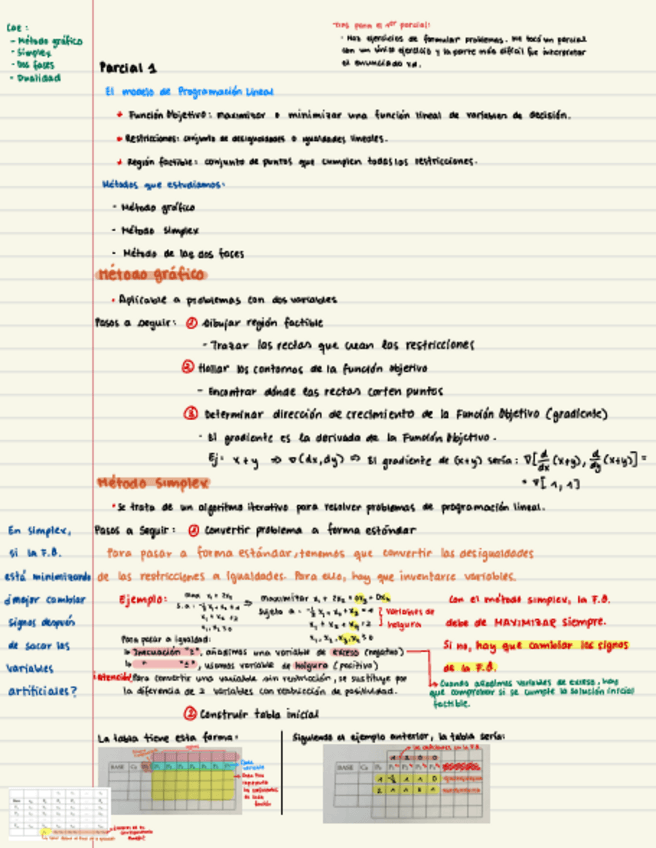 Cae:
- Método gráfico
- Simplex
- Dos fases
- Dualidad
Tips para el 1er parcial:
- Haz ejercicios de formular problemas. Me tocó un parcial
con un único ejercicio y la parte más difícil fue interpretar
el enunciado xd.
Parcial 1
El modelo de Programación Lineal
Función Objetivo: maximizar o minimizar una función lineal de variables de decisión.
Restricciones: conjunto de desigualdades o igualdades lineales.
Región factible: conjunto de puntos que cumplen todas las restricciones.
Métodos que estudiamos:
- Método gráfico
- Método simplex
- Método de las dos fases
Método gráfico
• Aplicable a problemas con dos variables
Pasos a seguir: ① Dibujar región factible
- Trazar las rectas que crean las restricciones
② Hallar los contornos de la función objetivo
- Encontrar dónde las rectas corten puntos
③ Determinar dirección de crecimiento de la Función Objetivo (gradiente)
- El gradiente es la derivada de la Función Objetivo.
Ej: x+y ⇒ ∇(dx,dy) ⇒ El gradiente de (x+y) sería: ∇[d/dx (x+y), d/dy (x+y)] =
= ∇[1,1]
Método Simplex
• Se trata de un algoritmo iterativo para resolver problemas de programación lineal.
Pasos a seguir: ① Convertir problema a forma estándar
Para pasar a forma estándar, tenemos que convertir las desigualdades
de las restricciones a igualdades. Para ello, hay que inventarse variables.
En simplex,
si la F.O.
está minimizando
¿mejor cambiar
signos después
de sacar las
variables
artificiales?
Ejemplo:
maximizar x₁ + 2x₂ + 0x₃ + 0x₄
Variables de
holgura
Para pasar a igualdad:
Inecuación "≥", añadimos una variable de exceso (negativo)
" "≤", usamos variable de holgura (positivo)
¡Atención! Para convertir una variable sin restricción, se sustituye por
la diferencia de 2 variables con restricción de positividad.
Con el método simplex, la F.O.
debe de MAXIMIZAR siempre.
Si no, hay que cambiar los signos
de la F.O.
Cuando añadimos variables de exceso, hay
que comprobar si se cumple la solución inicial
factible.
② Construir tabla inicial
La tabla tiene esta forma:
Siguiendo el ejemplo anterior, la tabla sería:
BASE
BASE